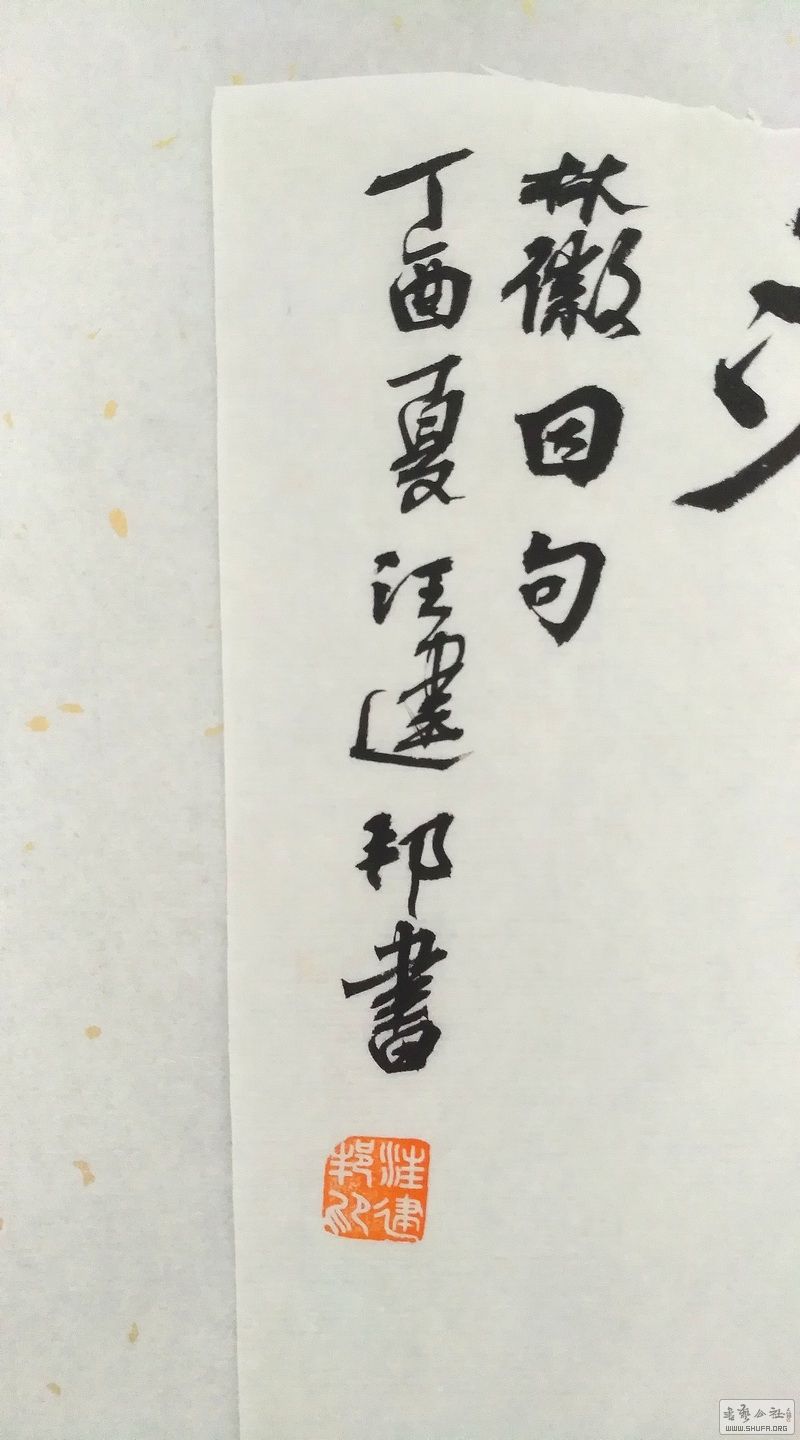 林徽因句
丁酉夏汪建邦書
汪建邦印
書藝公社
WWW.SHUFA.ORG